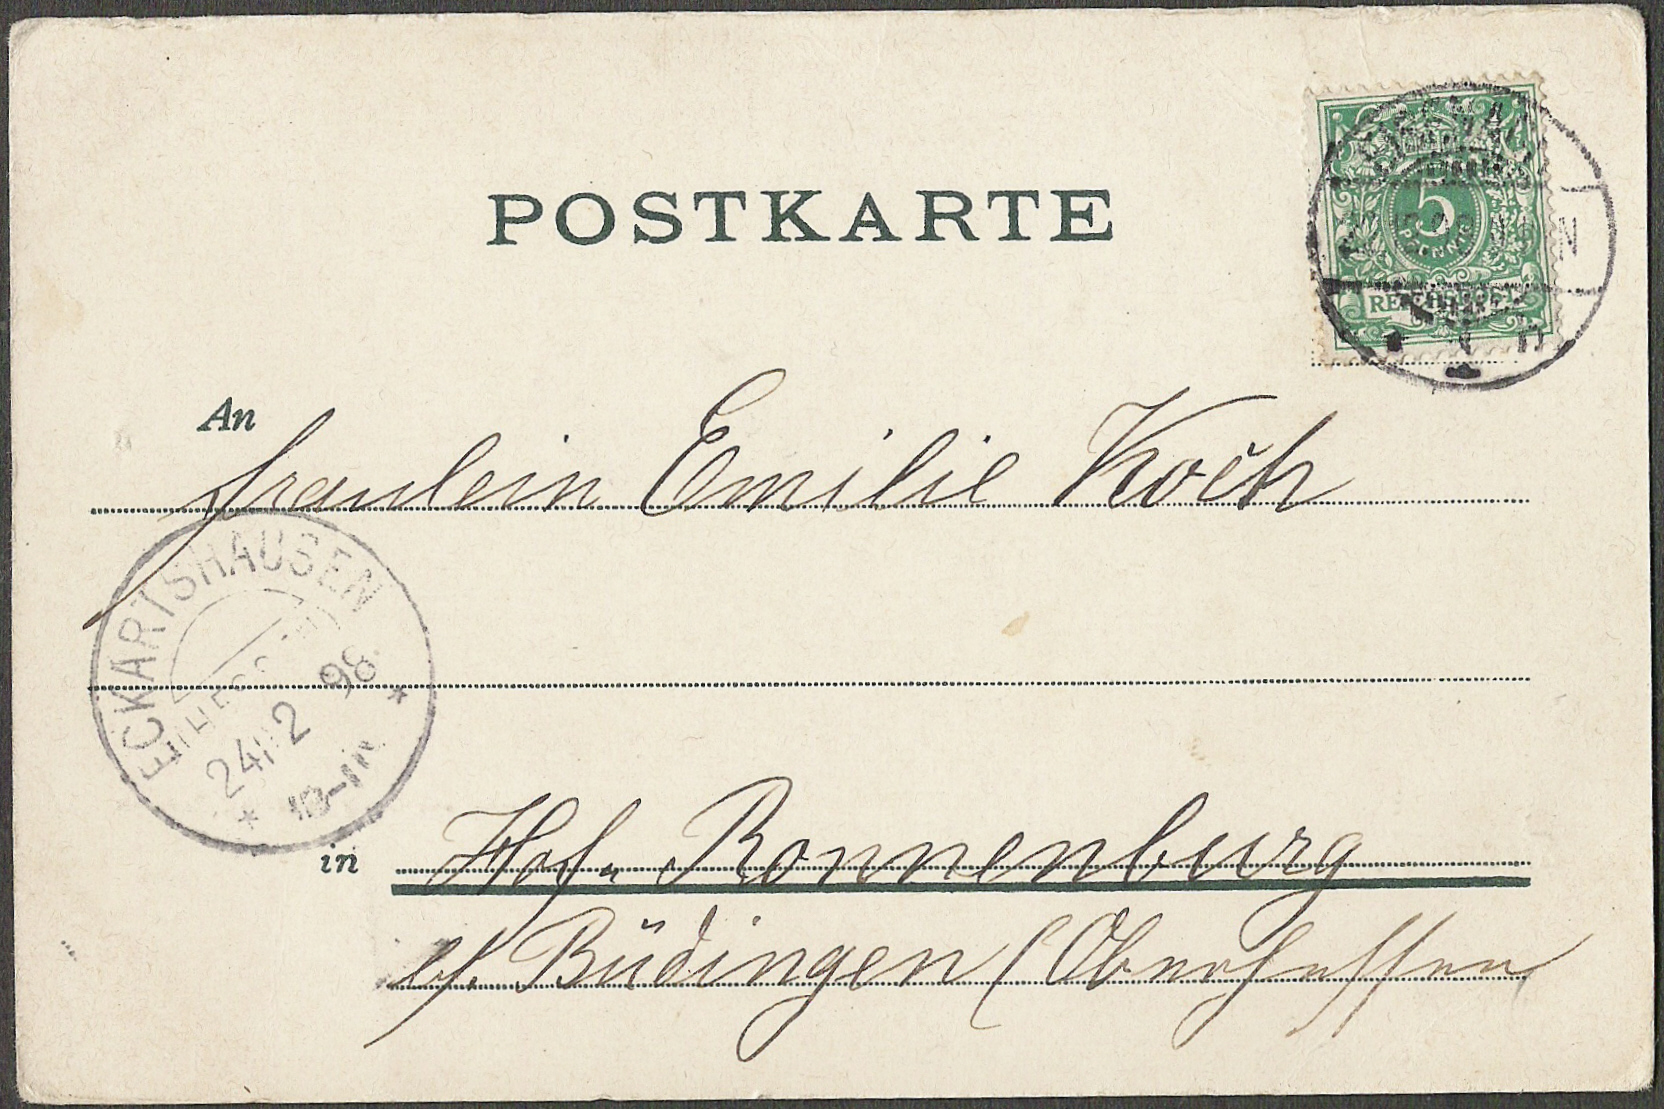 POSTKARTE
5
PFENNIG
REICHSPOST
An
Fräulein Emilie Koch
ECKARTSHAUSEN
24 2 98
in
Hof. Ronnenburg
b/. Büdingen (Oberhessen